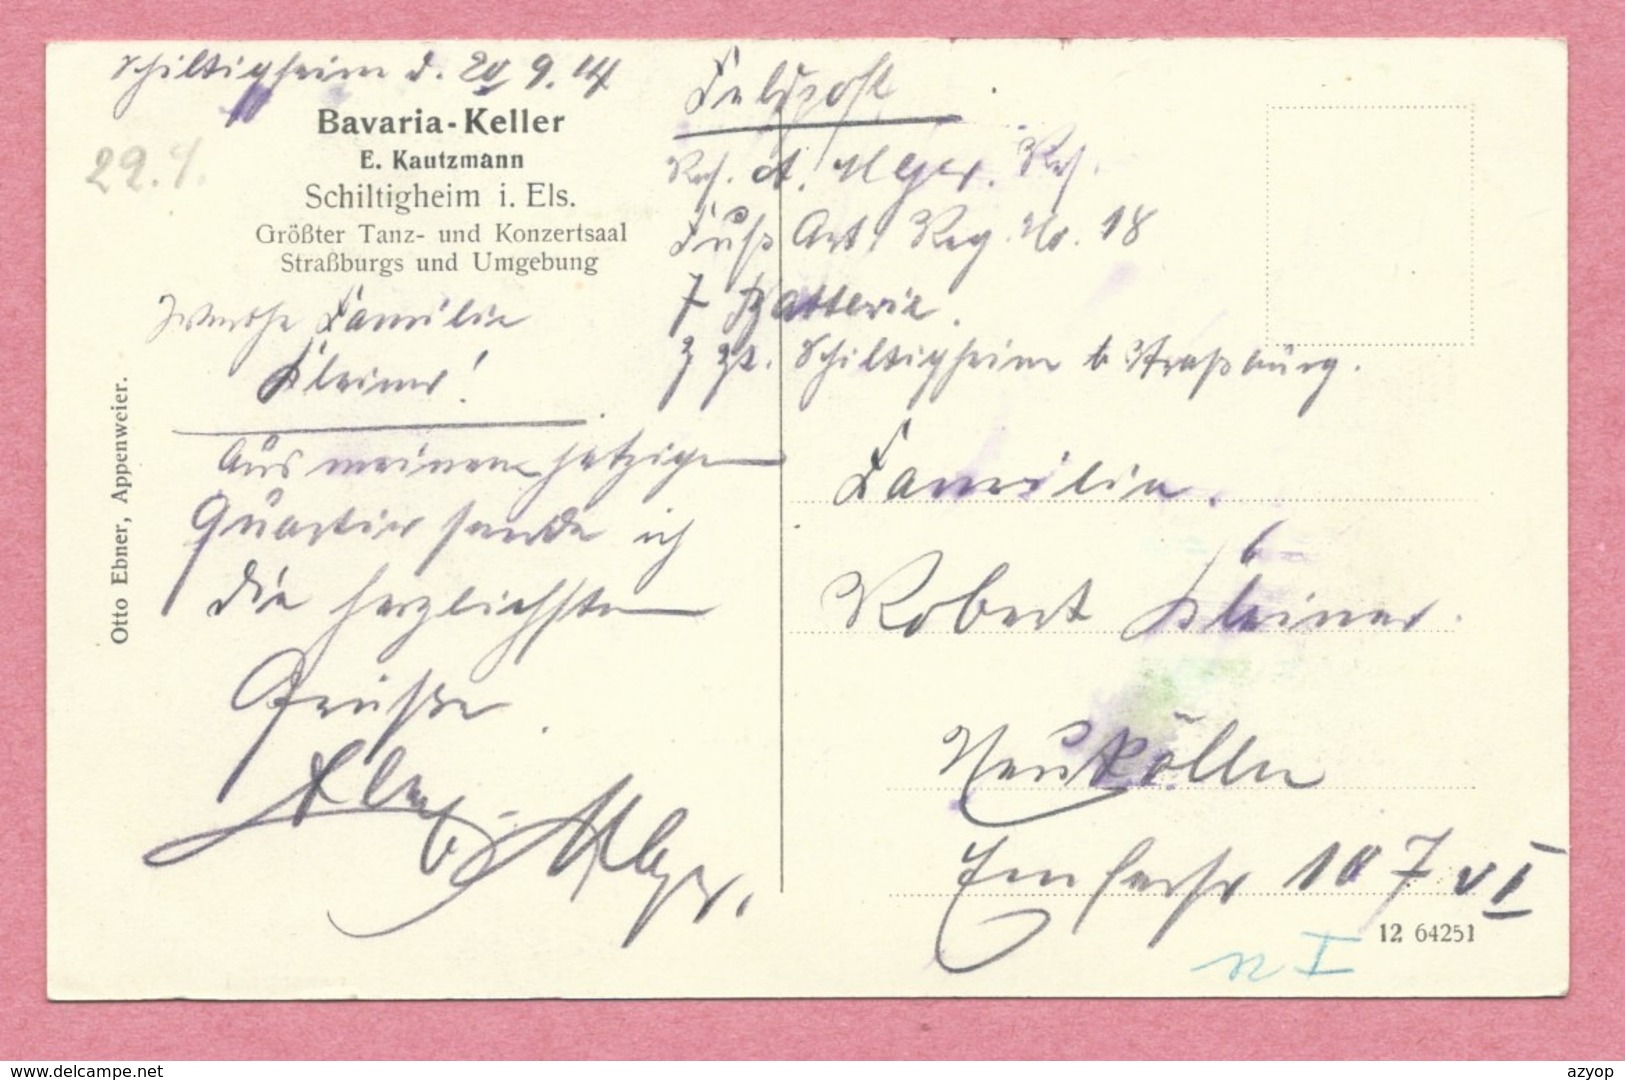 Schiltigheim d. 20 9. 14
29.4.
Bavaria-Keller
E. Kautzmann
Schiltigheim i. Els.
Größter Tanz- und Konzertsaal
Straßburgs und Umgebung
Werthe Familie
Kleiner!
Aus meinem jetzigen
Quartier sende ich
die herzlichsten
Grüße.
Meyer.
Otto Ebner, Appenweier.
Feldpost
Res. A. Meyer. Res.
Fuß Art. Reg. No. 18
7 Batterie.
z zt. Schiltigheim b Straßburg.
Familie.
Robert Kleiner.
Neukölln
Emserstr 107 v I
12 64251
n I
www.delcampe.net
azyop